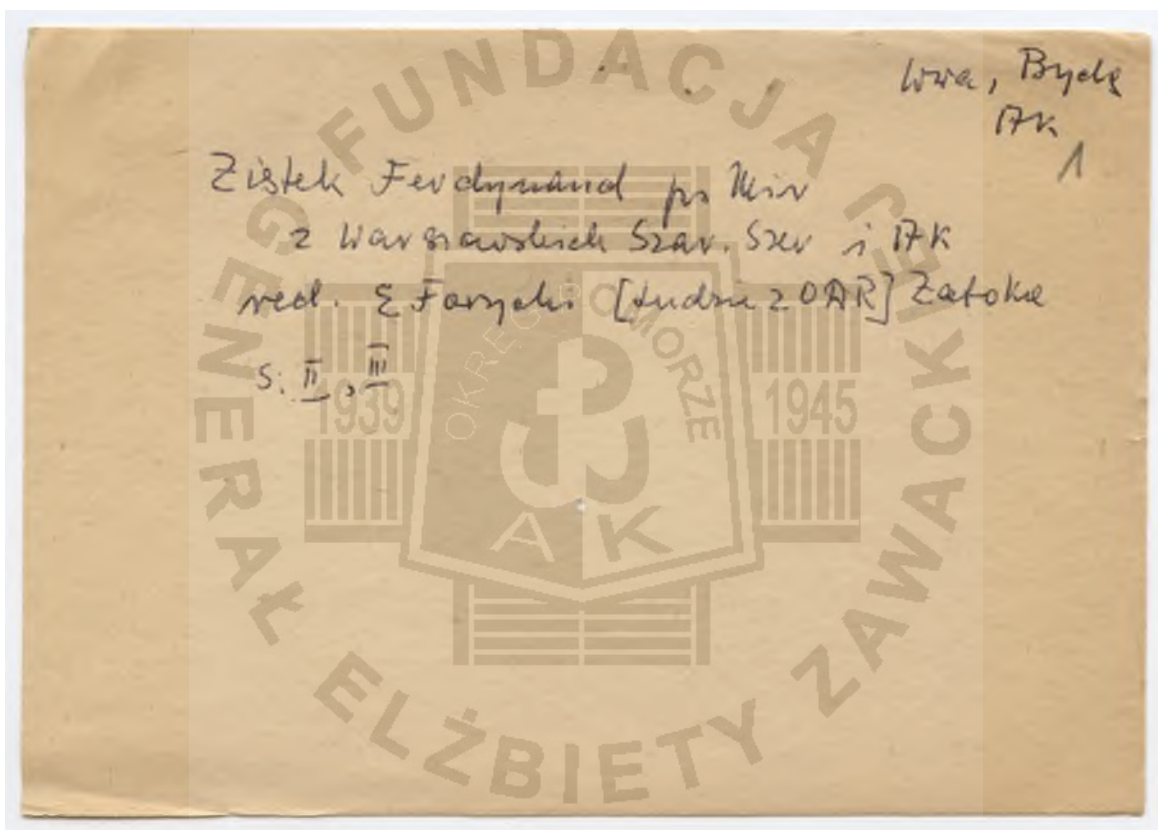 Wwa, Bydg
AK
1
Ziętek Ferdynand ps Mir
z Warszawskich Szar. Szer i AK
red. E Faryski [Ludzie z OAR] Zatoka
S: II, III
FUNDACJA
GENERAŁ ELŻBIETY ZAWACKIEJ
OKRĘG POMORZE
1939
1945
AK